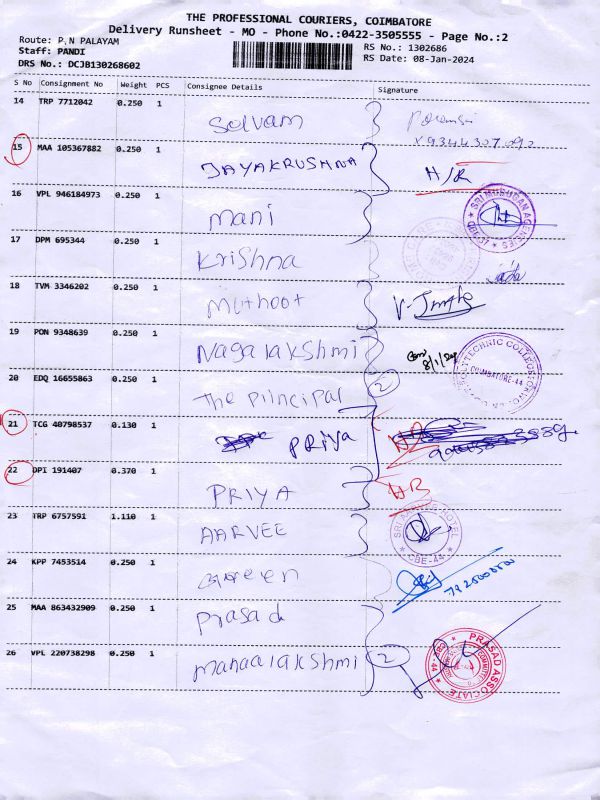 THE PROFESSIONAL COURIERS, COIMBATORE
Delivery Runsheet - MO - Phone No.:0422-3505555 - Page No.:2
Route: P,N PALAYAM
RS No.: 1302686
Staff: PANDI
RS Date: 08-Jan-2024
DRS No.: DCJB130268602
S No Consignment No Weight PCS Consignee Details Signature
14 TRP 7712042 0.250 1 Selvam
15 MAA 105367882 0.250 1 JAYAKRUSHNA
16 VPL 946184973 0.250 1 Mani
SRI MURUGAN AGENCIES
17 DPM 695344 0.250 1 Krishna
18 TVM 3346202 0.250 1 Muthoot
19 PON 9348639 0.250 1 Nagalakshmi
TECHNIC COLLEGE
COIMBATORE-44
20 EDQ 16655863 0.250 1 The Principal 2
21 TCG 40798537 0.130 1 PRIYA
22 DPI 191407 0.370 1 PRIYA
23 TRP 6757591 1.110 1 AARVEE
HOTEL
CBE-44
24 KPP 7453514 0.250 1
25 MAA 863432909 0.250 1 Prasad
26 VPL 220738298 0.250 1 Mahaalakshmi 2
PRASAD ASSOCIATE